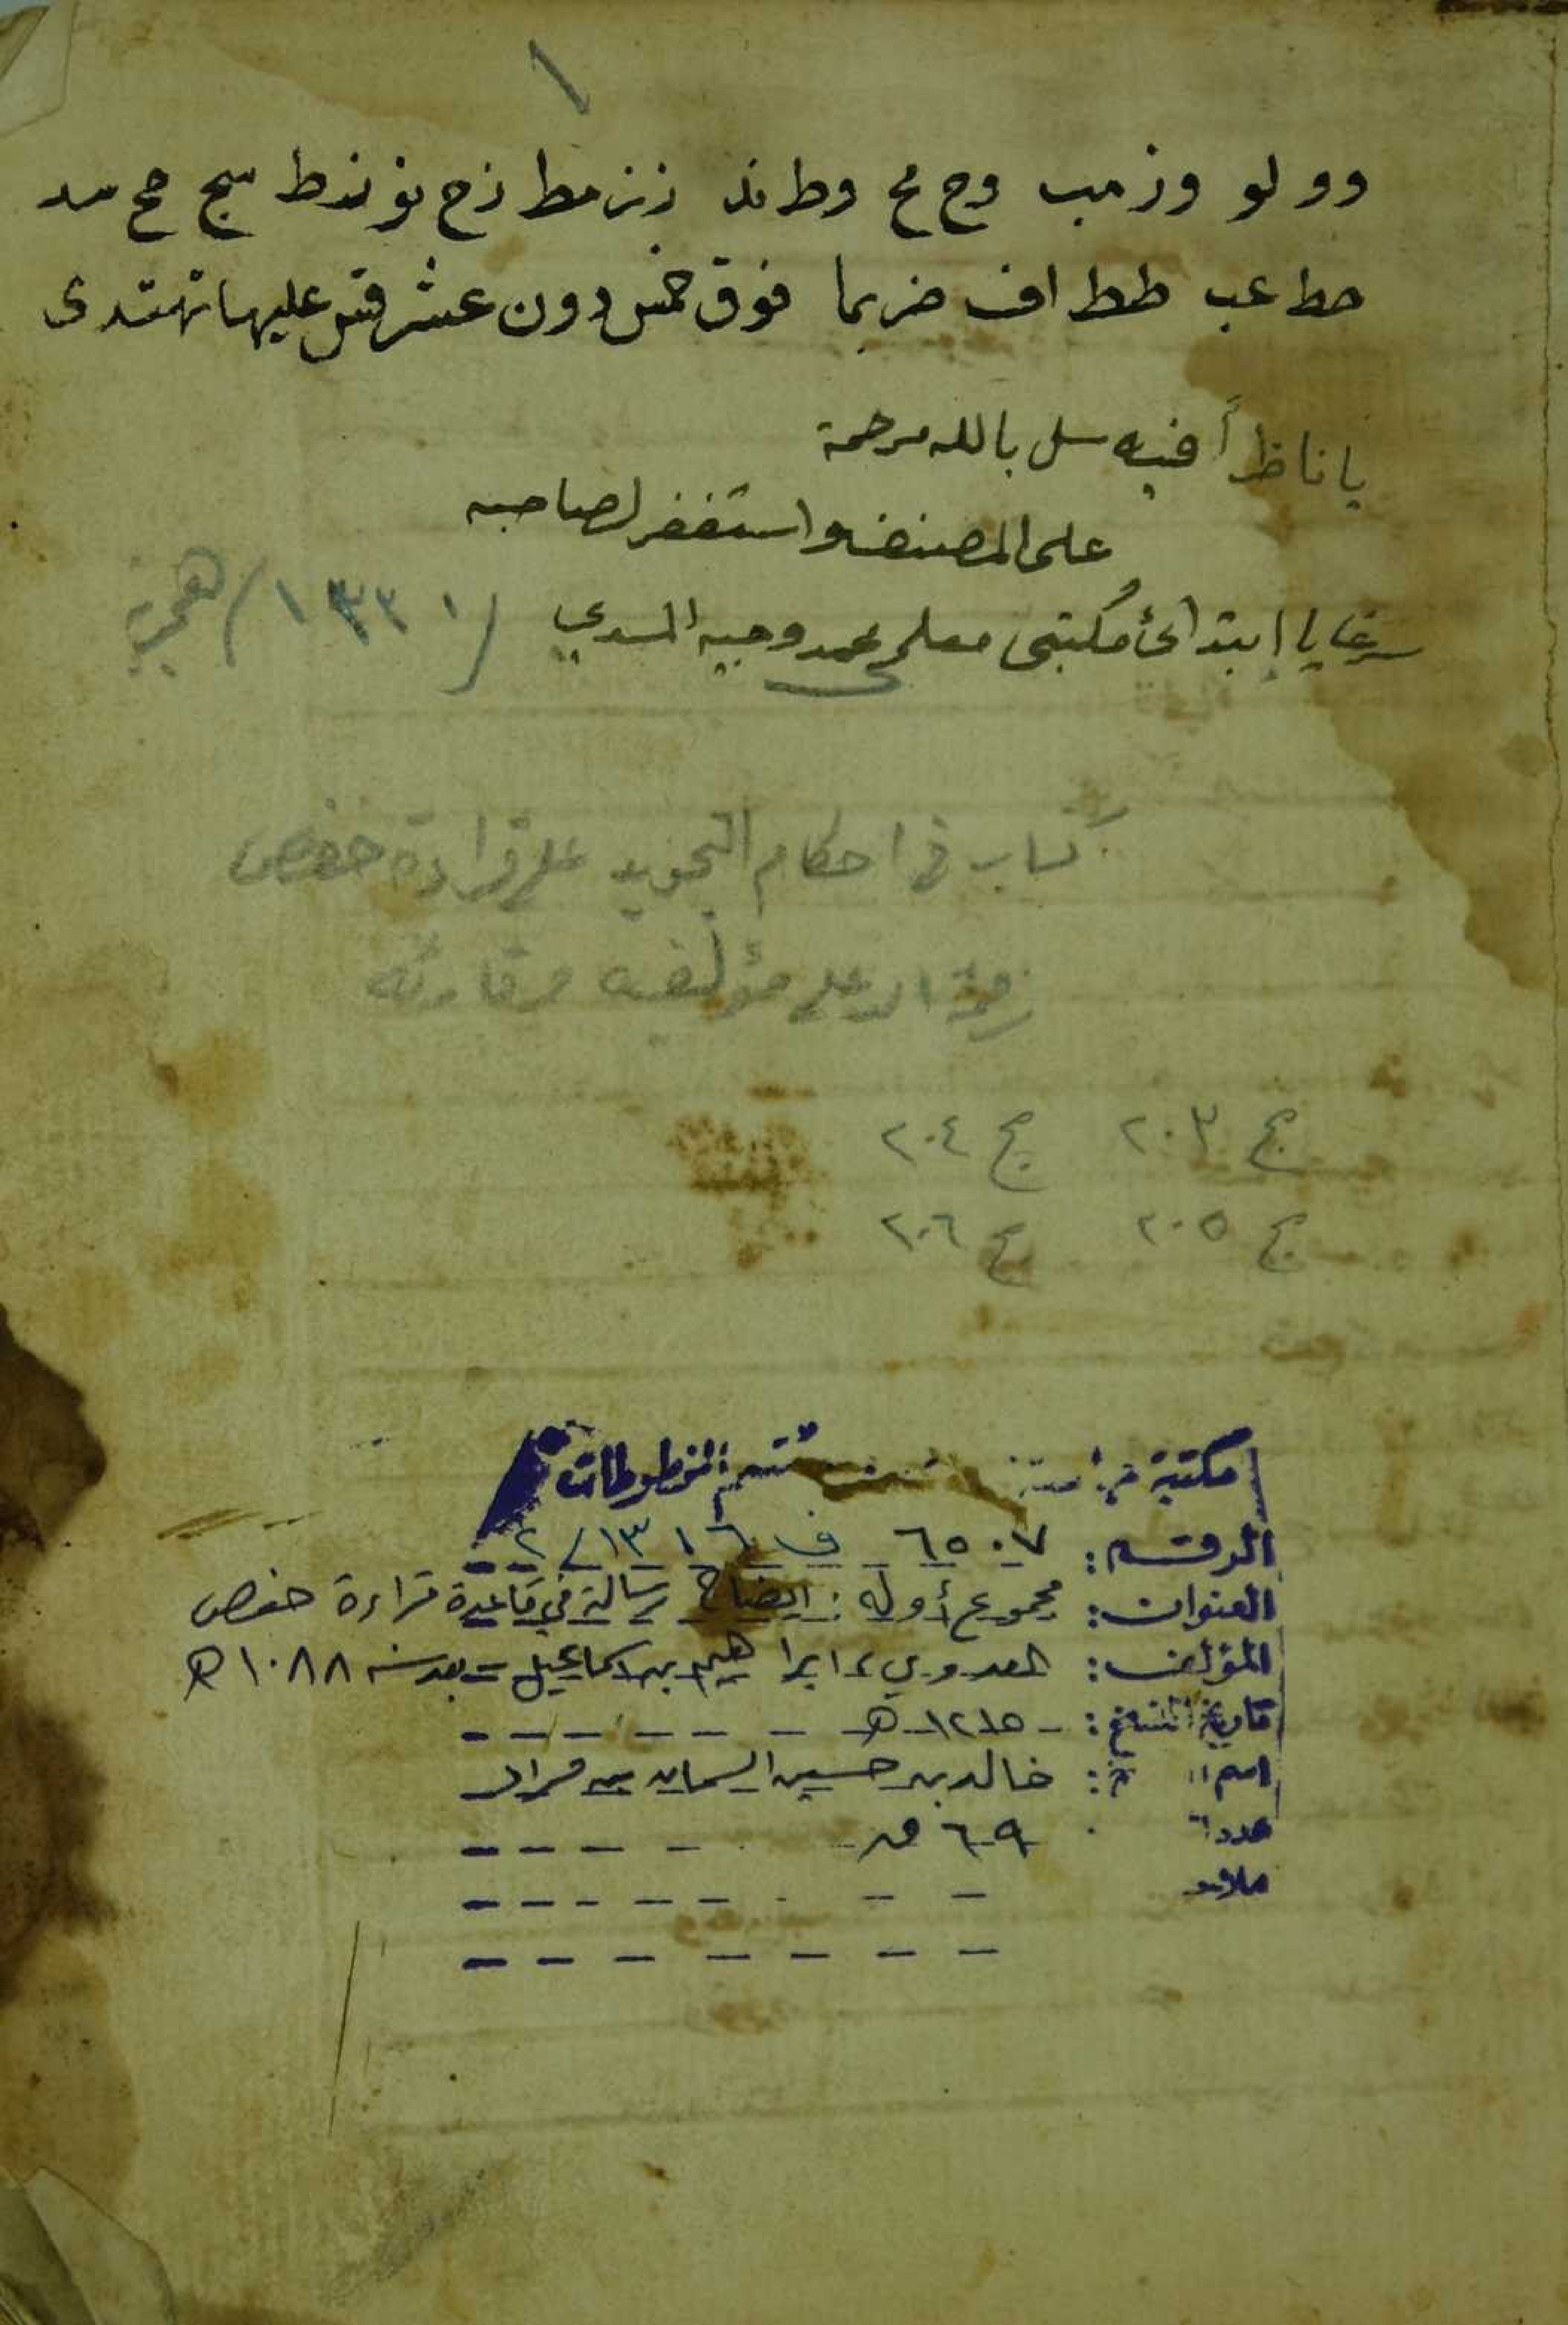 ١
وو لو وز مب وح مح وط ند زز مط زح نو ندط سج حح سد
حط عب طط اف ضربما فوق خمس دون عشر قس عليها تهتدى
يا ناظراً فيه سل بالله مرحمة
على المصنف واستغفر لصاحبه
إبتدائ مكتبى معلمى محمد وجيه (١٣٣١) هجرية
كتاب في احكام التجويد على قراءة حفص
رحمة الله على مؤلفيه وقارئه
ج ٢٠٣ ج ٢٠٤
ج ٢٠٥ ج ٢٠٦
مكتبة قسم المخطوطات
الرقم: ٦٥٠٧ ف ١٣١٦/٢
العنوان: مجموع أوله: ايضاح رسالة في قاعدة قراءة حفص
المؤلف: العدوي، ابراهيم بن اسماعيل - بعد سنه ١٠٨٨ هـ
تاريخ النسخ: ١٢١٥ هـ
اسم خالد بن حسين السمان مراد
عدد ٦٩ ق